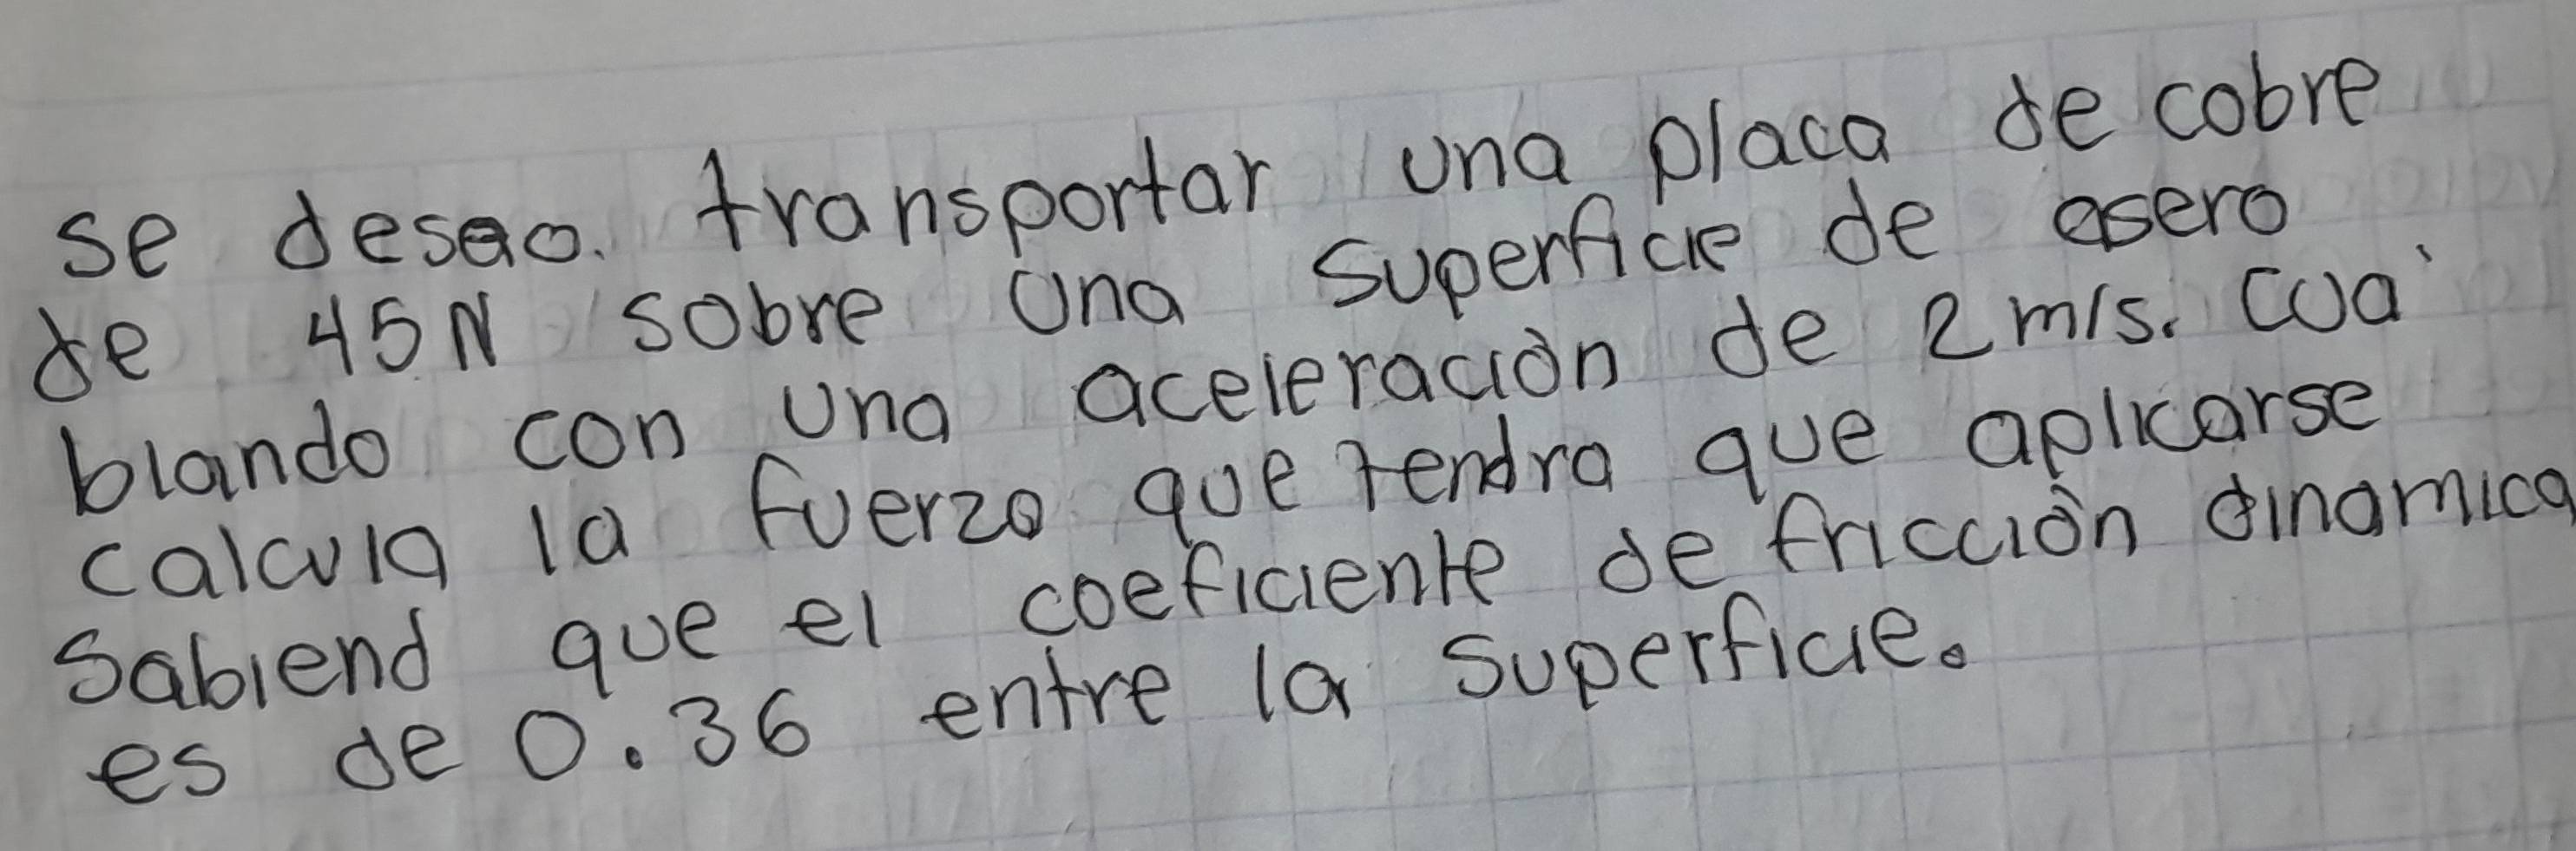 se deseao. transportar una placa de cobre
de 45N sobre una superficie de asero
blando con una aceleración de 2 m/s. Cua'
calcula la fuerza que tendra que aplicarse
Sabiend que el coeficiente de fricción dinamica
es de 0.36 entre la superficie.